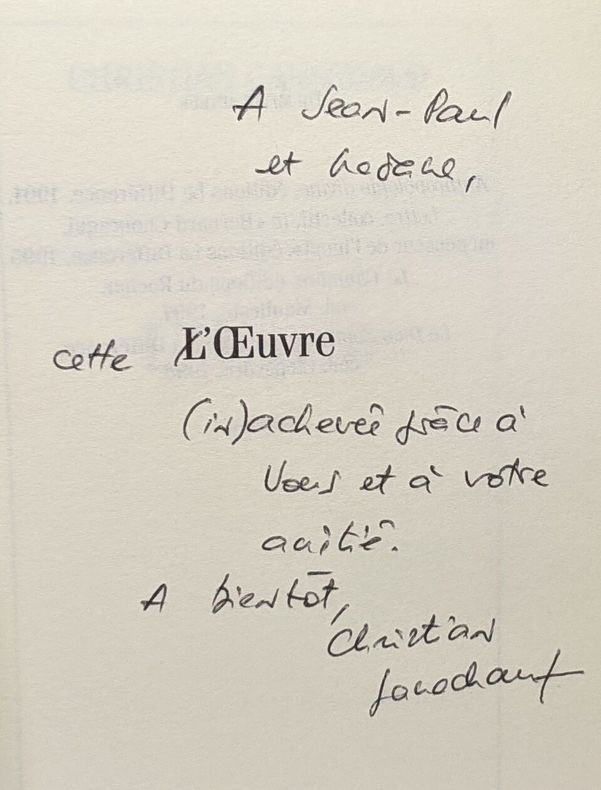 A Jean-Paul
et Madame,
cette L'Œuvre
(in)achevée grâce à
Vous et à votre
amitié.
A bientôt,
Christian